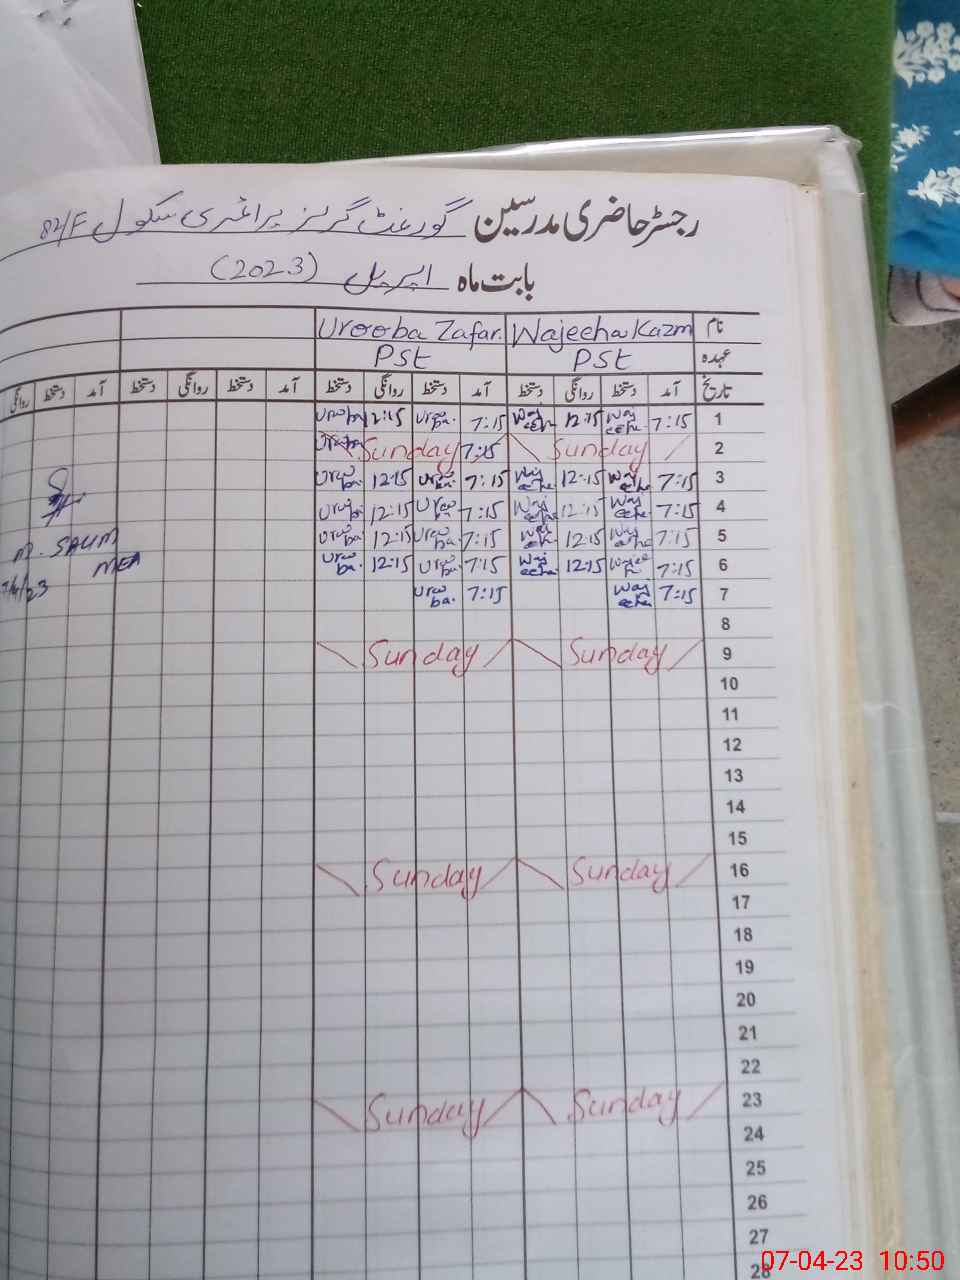 رجسٹر حاضری مدرسین گورنمنٹ گرلز پرائمری سکول 82/F
بابت ماہ اپریل (2023)
نام Wajeeha Kazm Urooba Zafar.
عہدہ PST PST
تاریخ آمد دستخط روانگی دستخط آمد دستخط روانگی دستخط آمد دستخط روانگی دستخط آمد دستخط روانگی
1 7:15 Waj eeha 12:15 Waj eeha 7:15 Uroo ba. 12:15 Urooba
2 Sunday 7:15 Sunday Urooba
3 7:15 Waj eeha 12:15 Waj eeha 7:15 Uroo ba. 12:15 Uroo ba.
4 7:15 Waj eeha 12:15 Waj eeha 7:15 Uroo ba. 12:15 Uroo ba
5 7:15 Waj eeha 12:15 Waj eeha 7:15 Uroo ba. 12:15 Uroo ba.
6 7:15 Wajee h 12:15 Waj eeha 7:15 Uroo ba. 12:15 Uroo ba.
7 7:15 Waj eeha 7:15 Uroo ba.
8
9 Sunday Sunday
10
11
12
13
14
15
16 Sunday Sunday
17
18
19
20
21
22
23 Sunday Sunday
24
25
26
27
28
M. SALIM
MEA
07-04-23 10:50